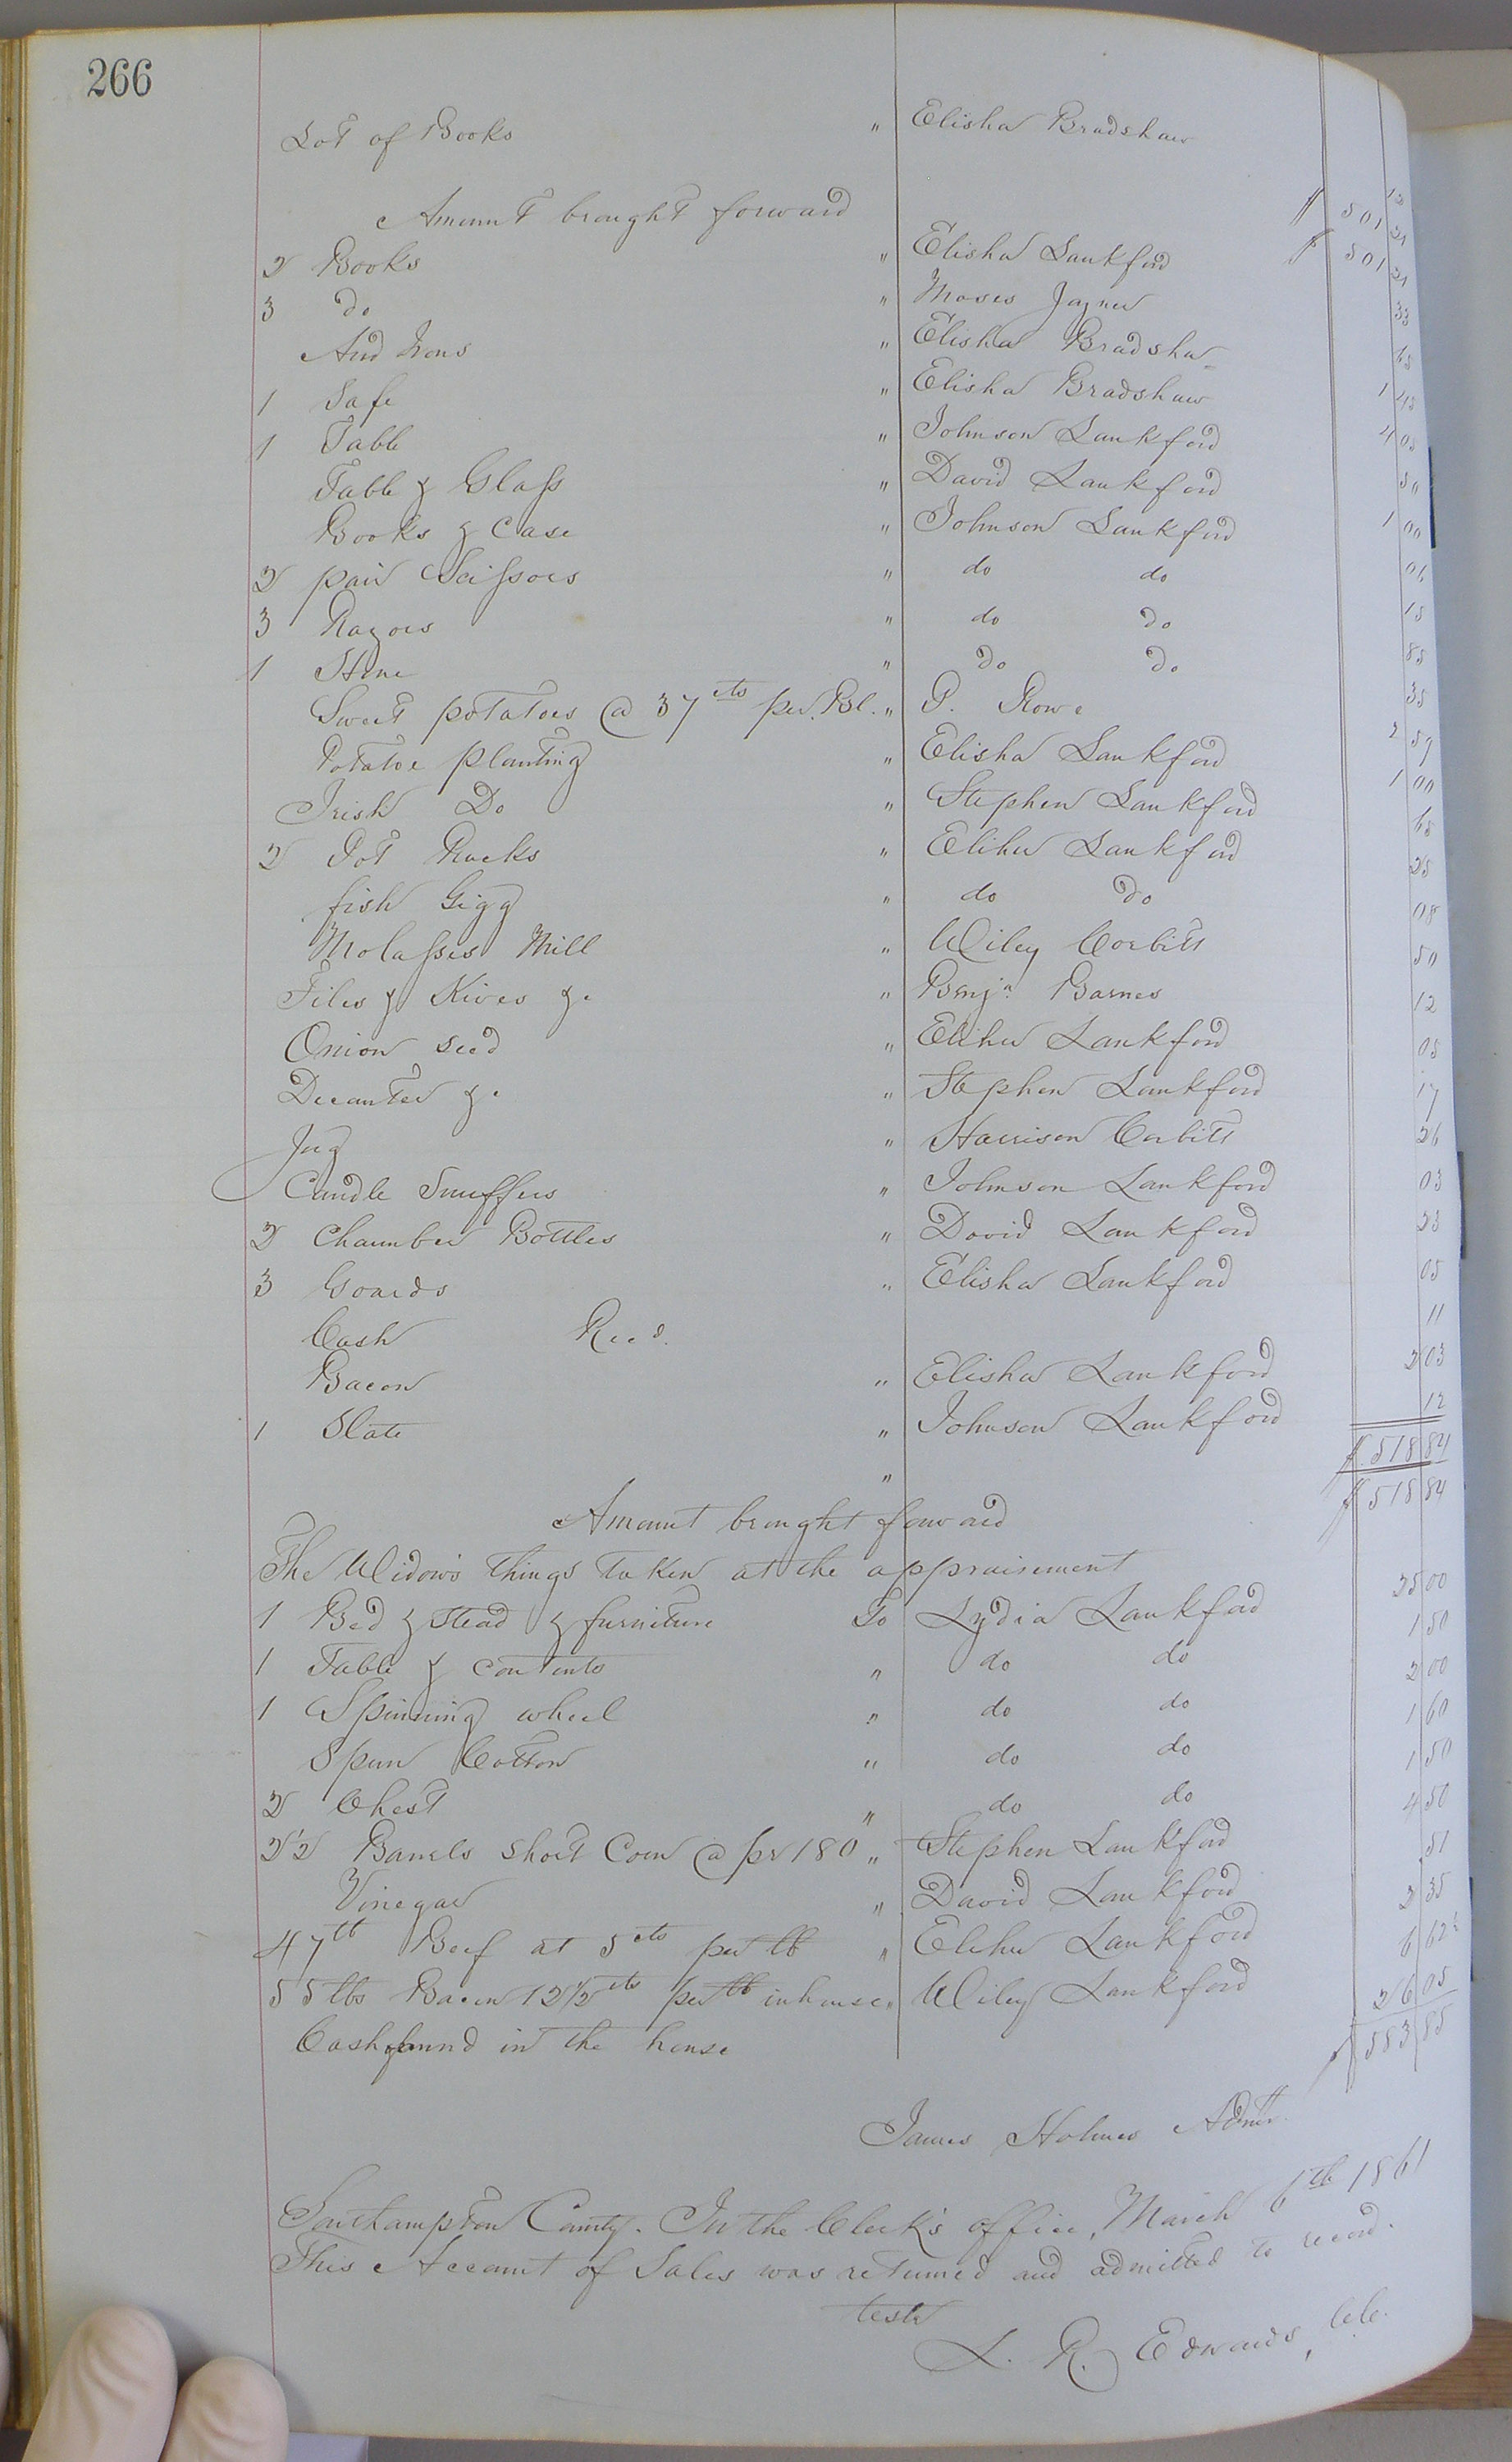 266
Lot of Books " Elisha Bradshaw 12
$ 501 21
Amount brought forward $ 501 21
2 Books " Elisha Lankford 33
3 do " Moses Joyner 65
And Irons " Elisha Bradshaw 1 45
1 Safe " Elisha Bradshaw 4 05
1 Table " Johnson Lankford 50
Table & Glass " David Lankford 1 00
Books & Case " Johnson Lankford 06
2 pair Scissors " do do 15
3 Razors " do do 85
1 Hone " do do 35
Sweet potatoes @ 37 cts per. Bl. " P. Rowe 2 59
Potatoe planting " Elisha Lankford 1 00
Irish Do " Stephen Lankford 65
2 Pot Racks " Elihu Lankford 25
fish Gigg " do do 08
Molasses Mill " Wiley Corbitt 50
Files & Kives &c " Benja Barnes 12
Onion seed " Elihu Lankford 05
Decanter &c " Stephen Lankford 17
Jug " Harrison Corbitt 26
Candle Snuffers " Johnson Lankford 03
2 Chamber Bottles " David Lankford 23
3 Goards " Elisha Lankford 05
Cash Recd. 11
Bacon " Elisha Lankford 2 03
1 Slate " Johnson Lankford 12
" $ 518 84
Amount brought forward $ 518 84
The Widow's things taken at the appraisement
1 Bed & stead & furniture To Lydia Lankford 25 00
1 Table & contents " do do 1 50
1 Spinning wheel " do do 2 00
Spun Cotton " do do 1 60
2 Chest " do do 1 50
2½ Barrels Short Corn @ pr 180 " Stephen Lankford 4 50
Vinegar " David Lankford 51
47 lb Beef at 5 cts per lb " Elihu Lankford 2 35
55 lbs Bacon 12½ cts per lb in house " Wiley Lankford 6 62½
Cash found in the house 26 05
$ 583 85
James Holmes Admr.
Southampton County. In the Clerk's office, March 6th 1861
This Account of Sales was returned and admitted to record.
teste
L. R. Edwards, C.C.